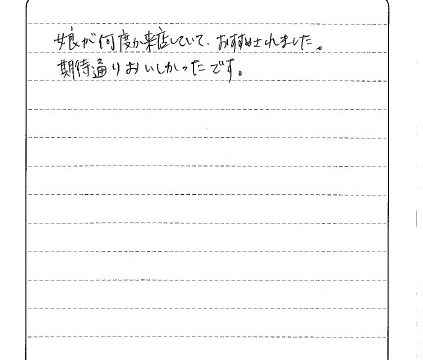 娘が何度か来店していて、おすすめされました。
期待通りおいしかったです。